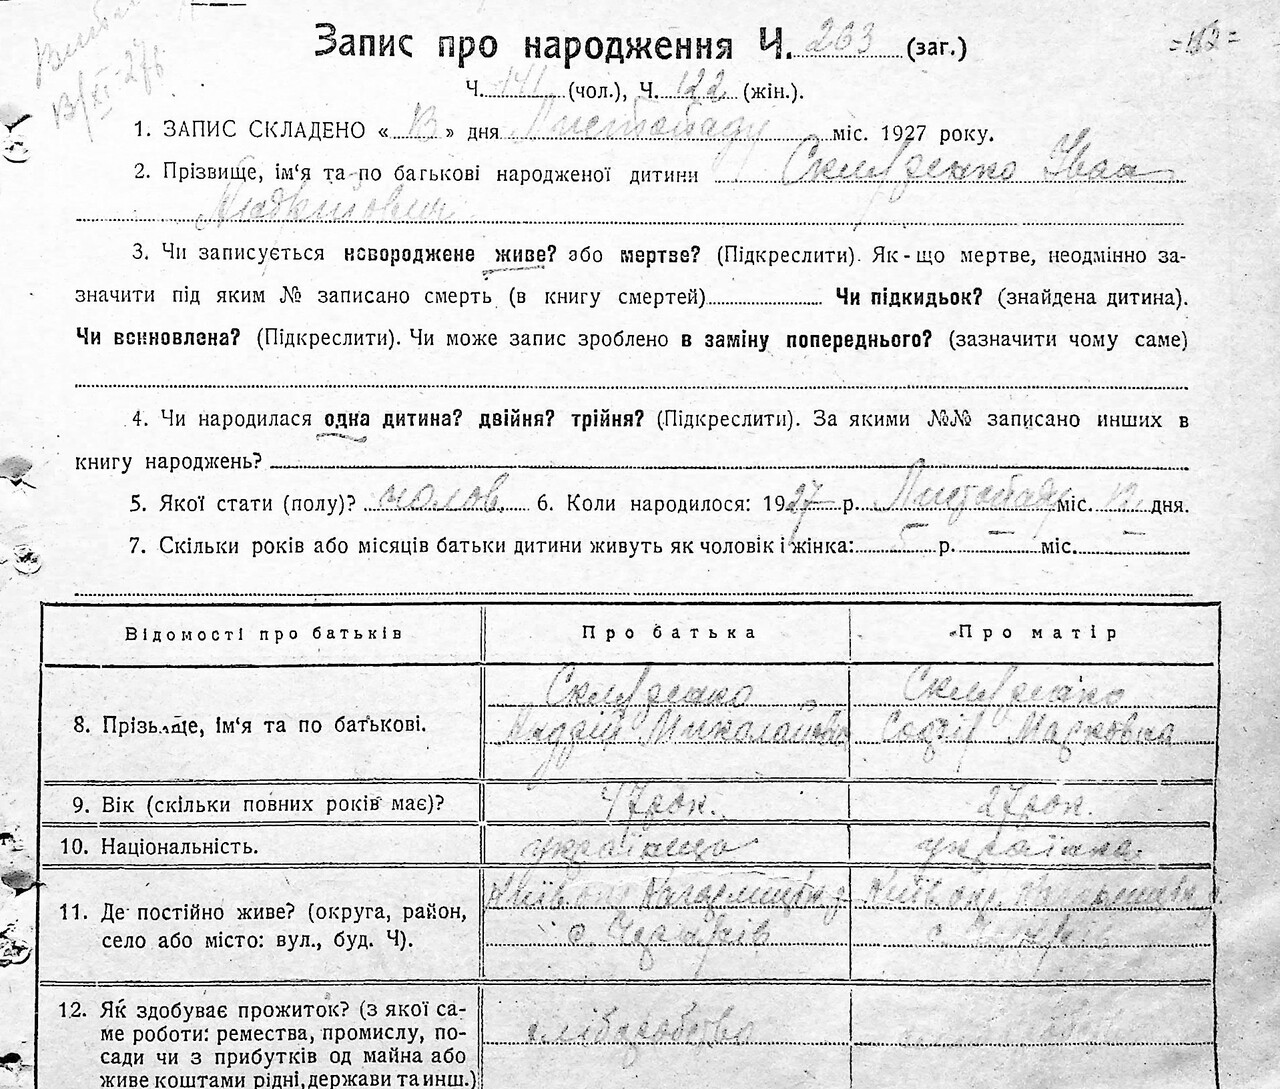 Запис про народження Ч. 263 (заг.)
=182=
Ч. 141 (чол.), Ч. 122 (жін.).
1. ЗАПИС СКЛАДЕНО « 13 » дня Листопаду міс. 1927 року.
2. Прізвище, ім‘я та по багькові народженої дитини Скляренко Іван
Андрійович
3. Чи записується новороджене живе? або мертве? (Підкреслити). Як-що мертве, неодмінно за-
значити під яким № записано смерть (в книгу смертей) Чи підкидьок? (знайдена дитина).
Чи всиновлена? (Підкреслити). Чи може запис зроблено в заміну попереднього? (зазначити чому саме)
4. Чи народилася одна дитина? двійня? трійня? (Підкреслити). За якими №№ записано инших в
книгу народжень?
5. Якої стати (полу)? чолов. 6. Коли народилося: 1927 р. Листопаду міс. 12 дня.
7. Скільки років або місяців батьки дитини живуть як чоловік і жінка: — р. — міс. —
Відомості про батьків Про батька Про матір
Скляренко Скляренко
8. Прізьвище, ім‘я та по батькові. Андрій Миколайович Софія Марковна
9. Вік (скільки повних років має)? 47 рок. 27 рок.
10. Національність. українець українка
11. Де постійно живе? (округа, район, Київ окр. Кагарлицьк. Київ окр. Кагарлицьк.
село або місто: вул., буд. Ч). с. с.
12. Як здобуває прожиток? (з якої са-
ме роботи: ремества, промислу, по- хліборобство
сади чи з прибутків од майна або
живе коштами рідні, держави та инш.)